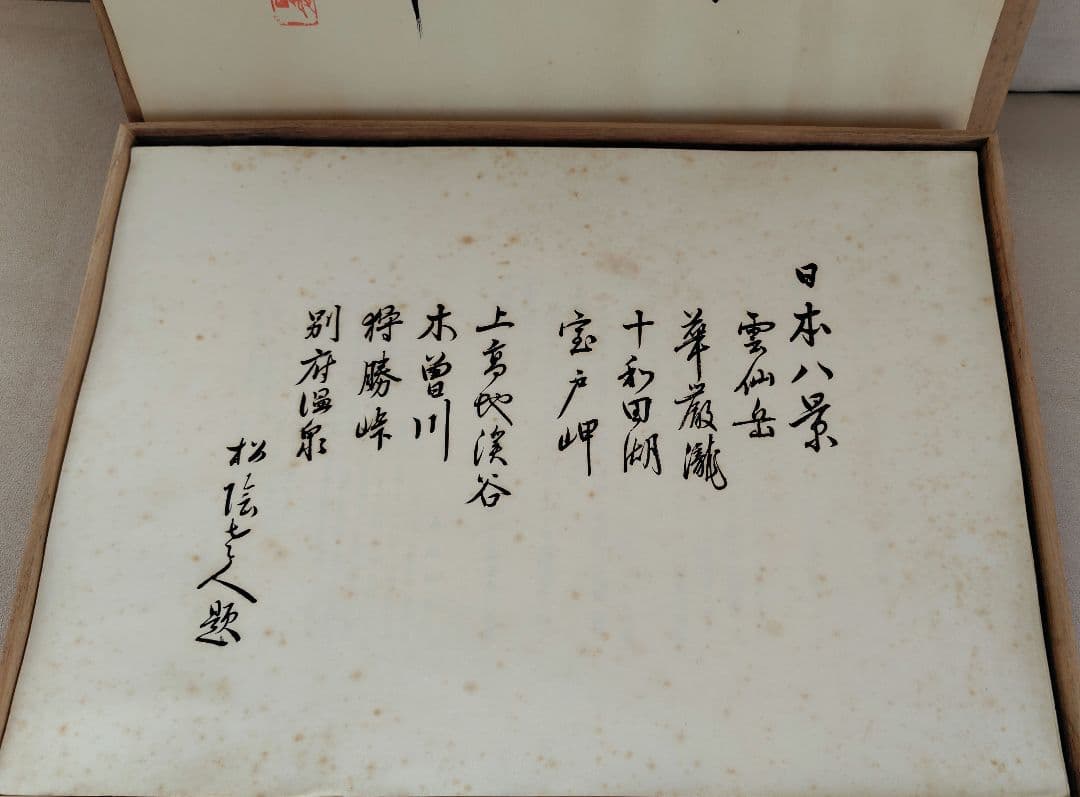 日本八景
雲仙岳
華厳瀧
十和田湖
室戸岬
上高地渓谷
木曽川
狩勝峠
別府温泉
松陰七人題